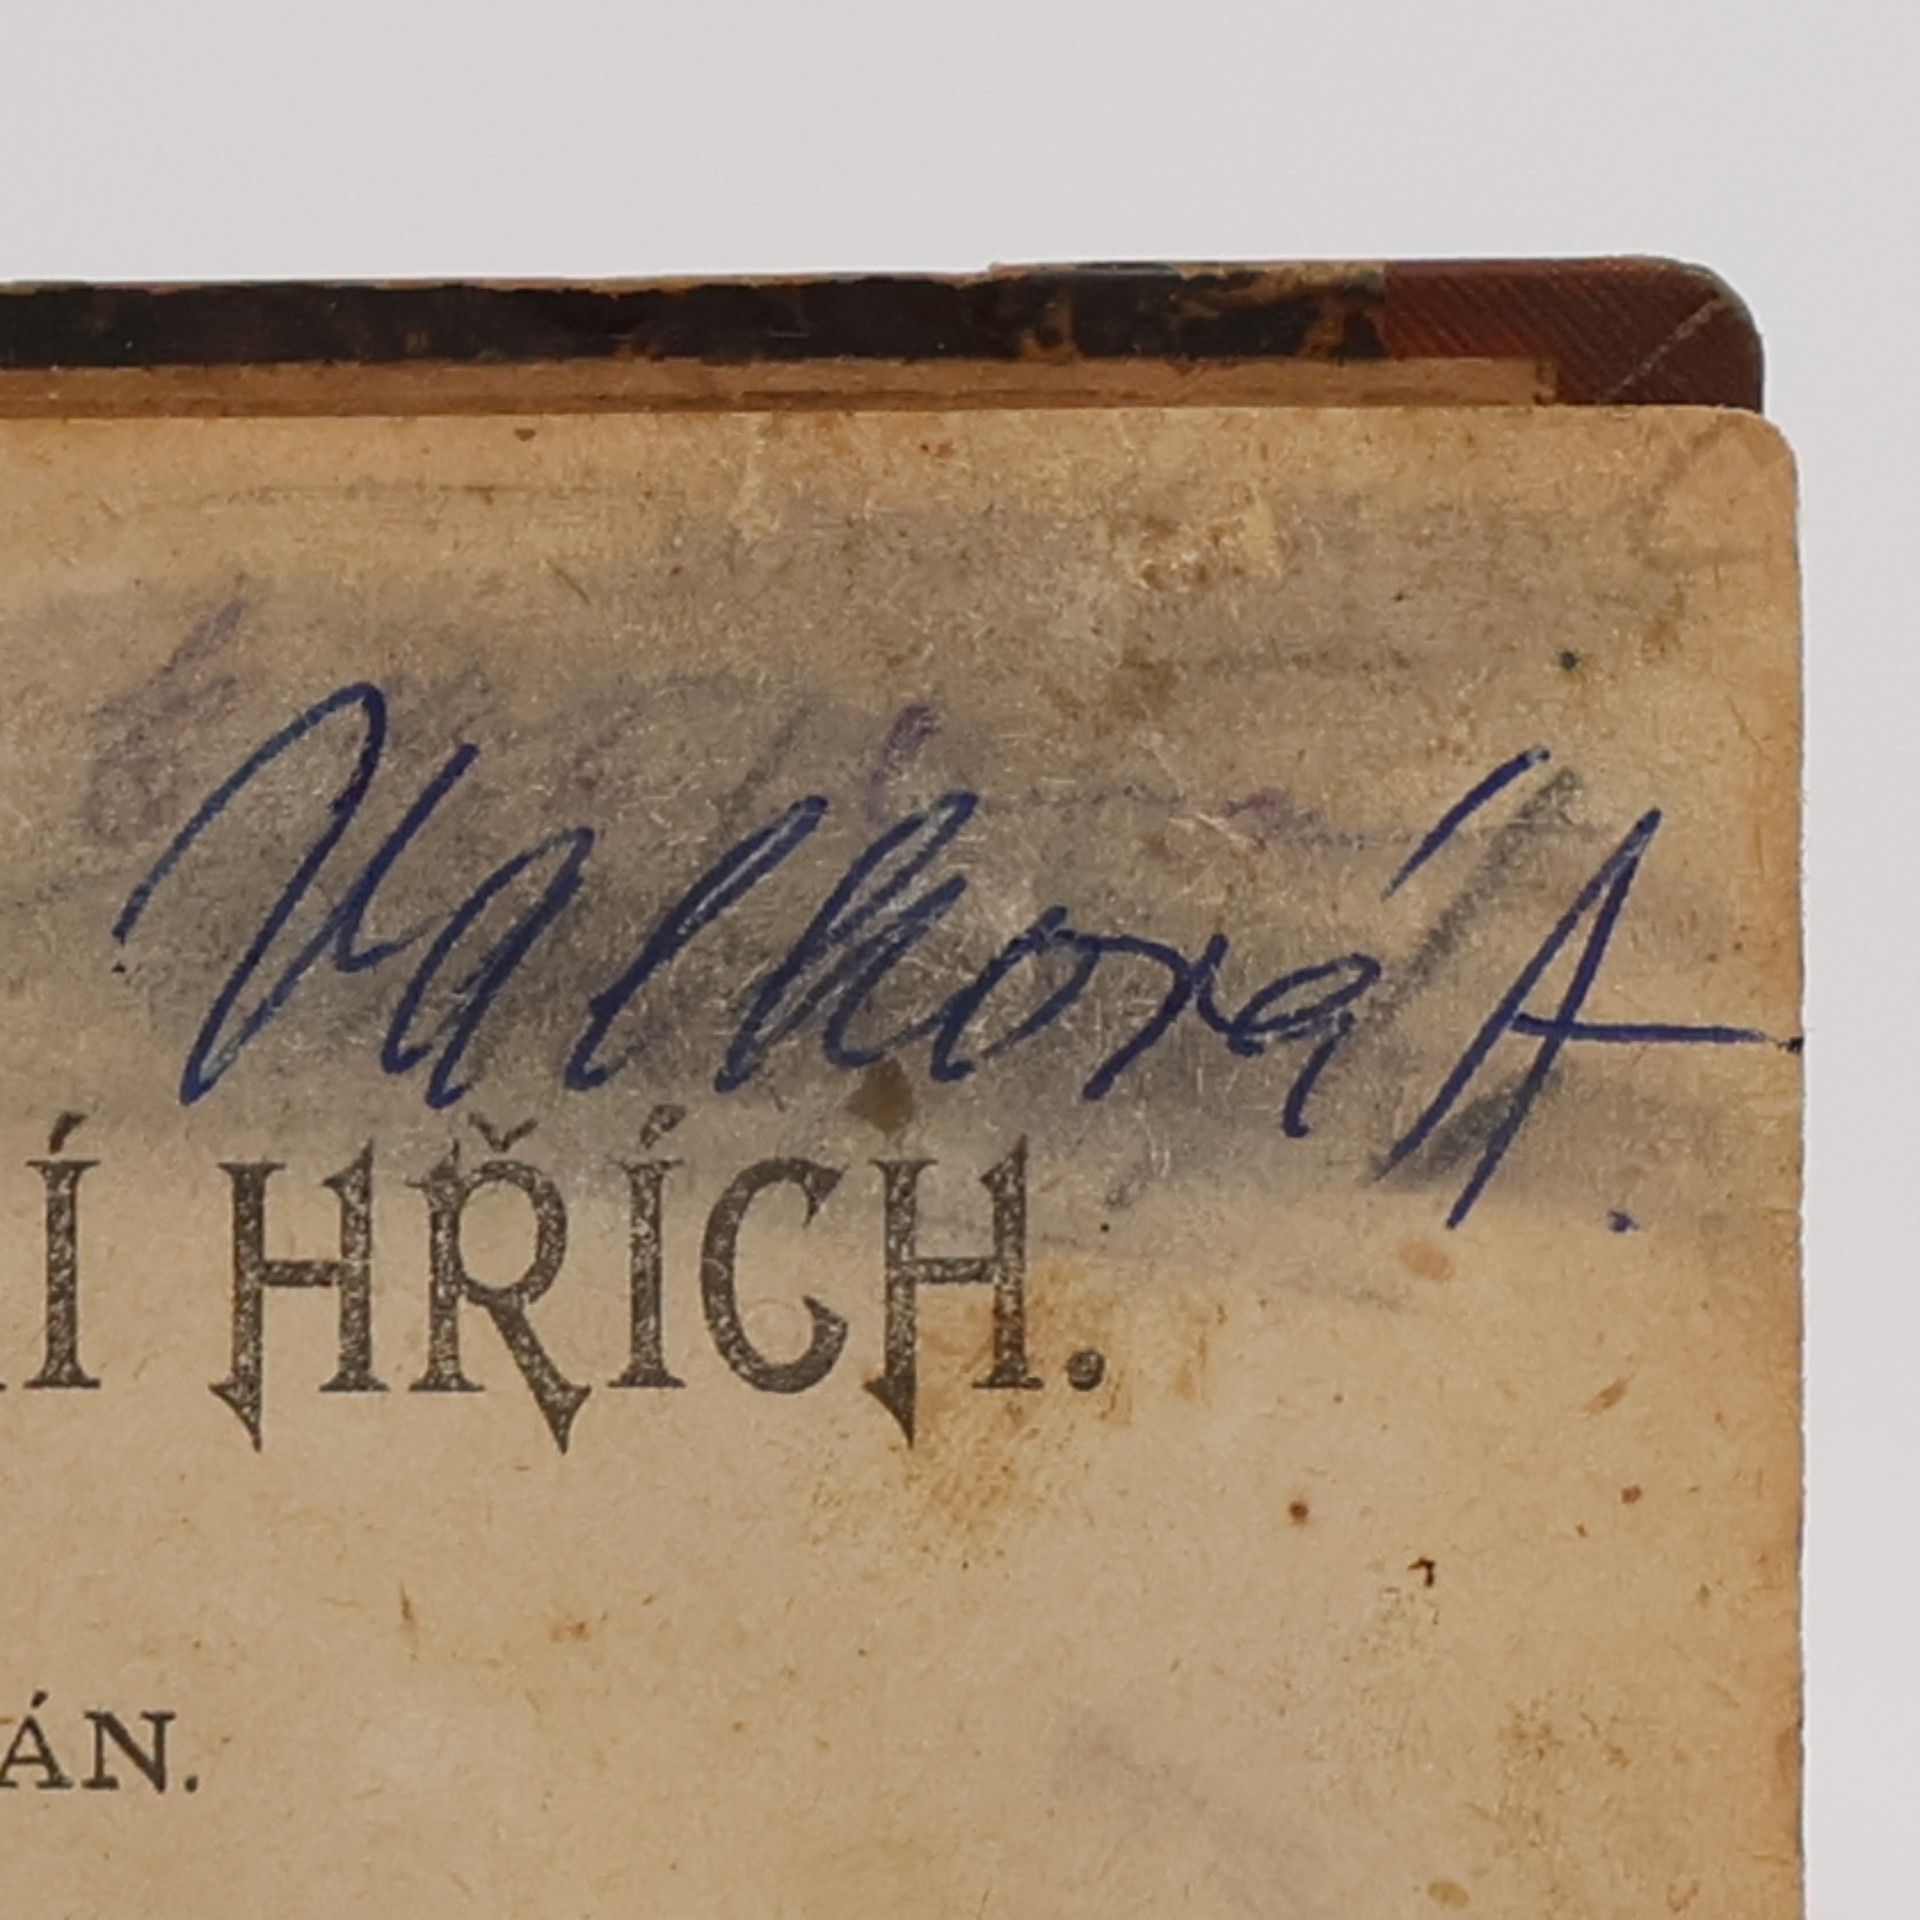 Valková A.
Í HŘÍCH.
ÁN.